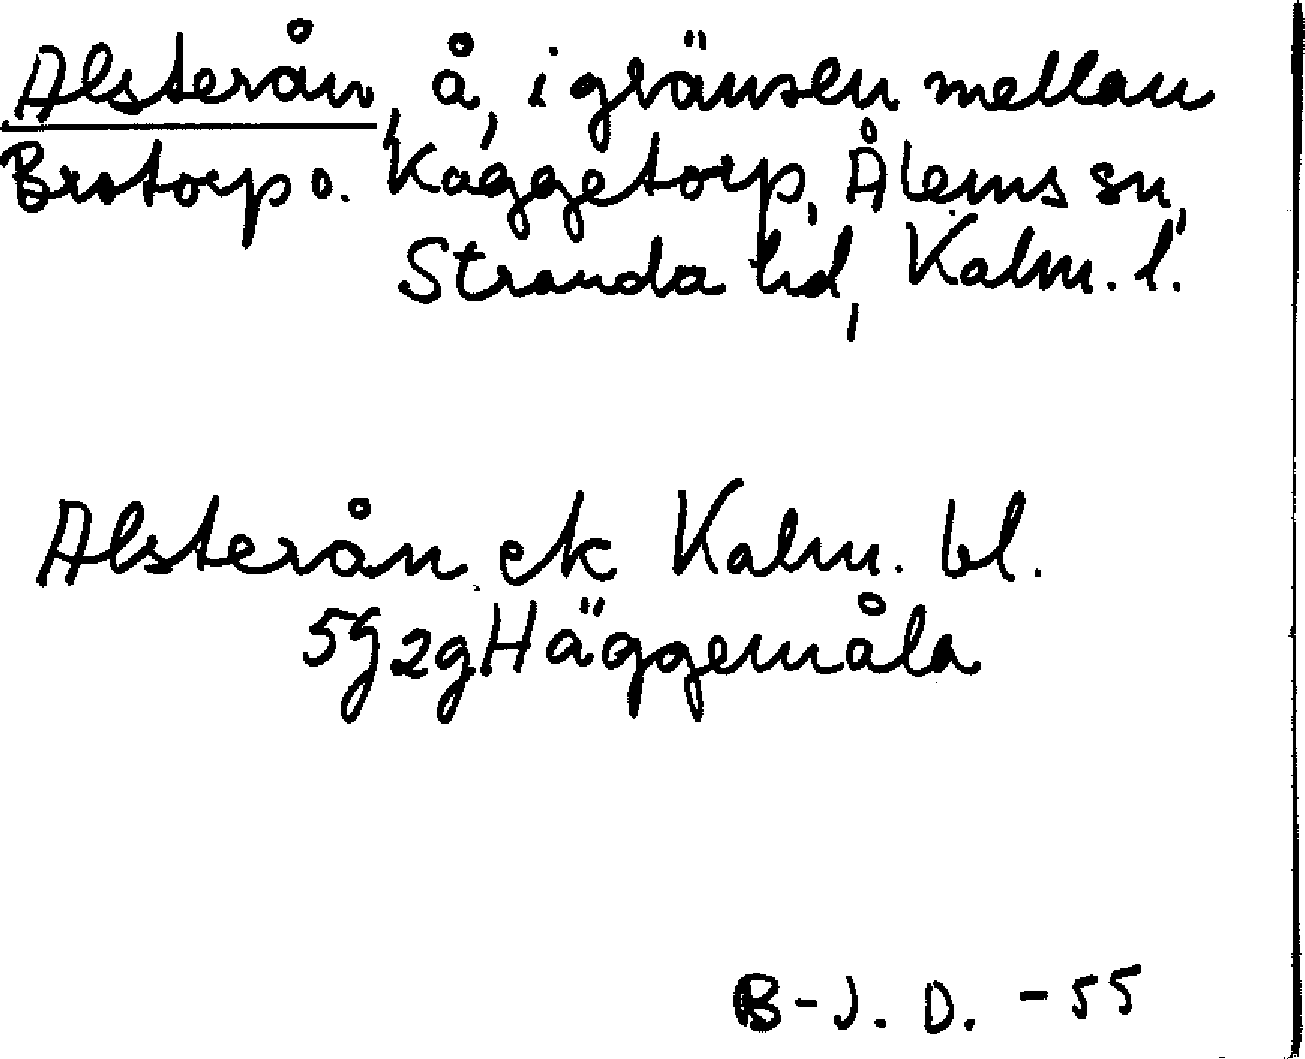 Alsterån, å, i gränsen mellan
Brotorp o. Kaggetorp, Ålems sn,
Stranda hd, Kalm. l.
Alsterån ek Kalm. bl.
5g2gHäggemåla
B-J. D. -55